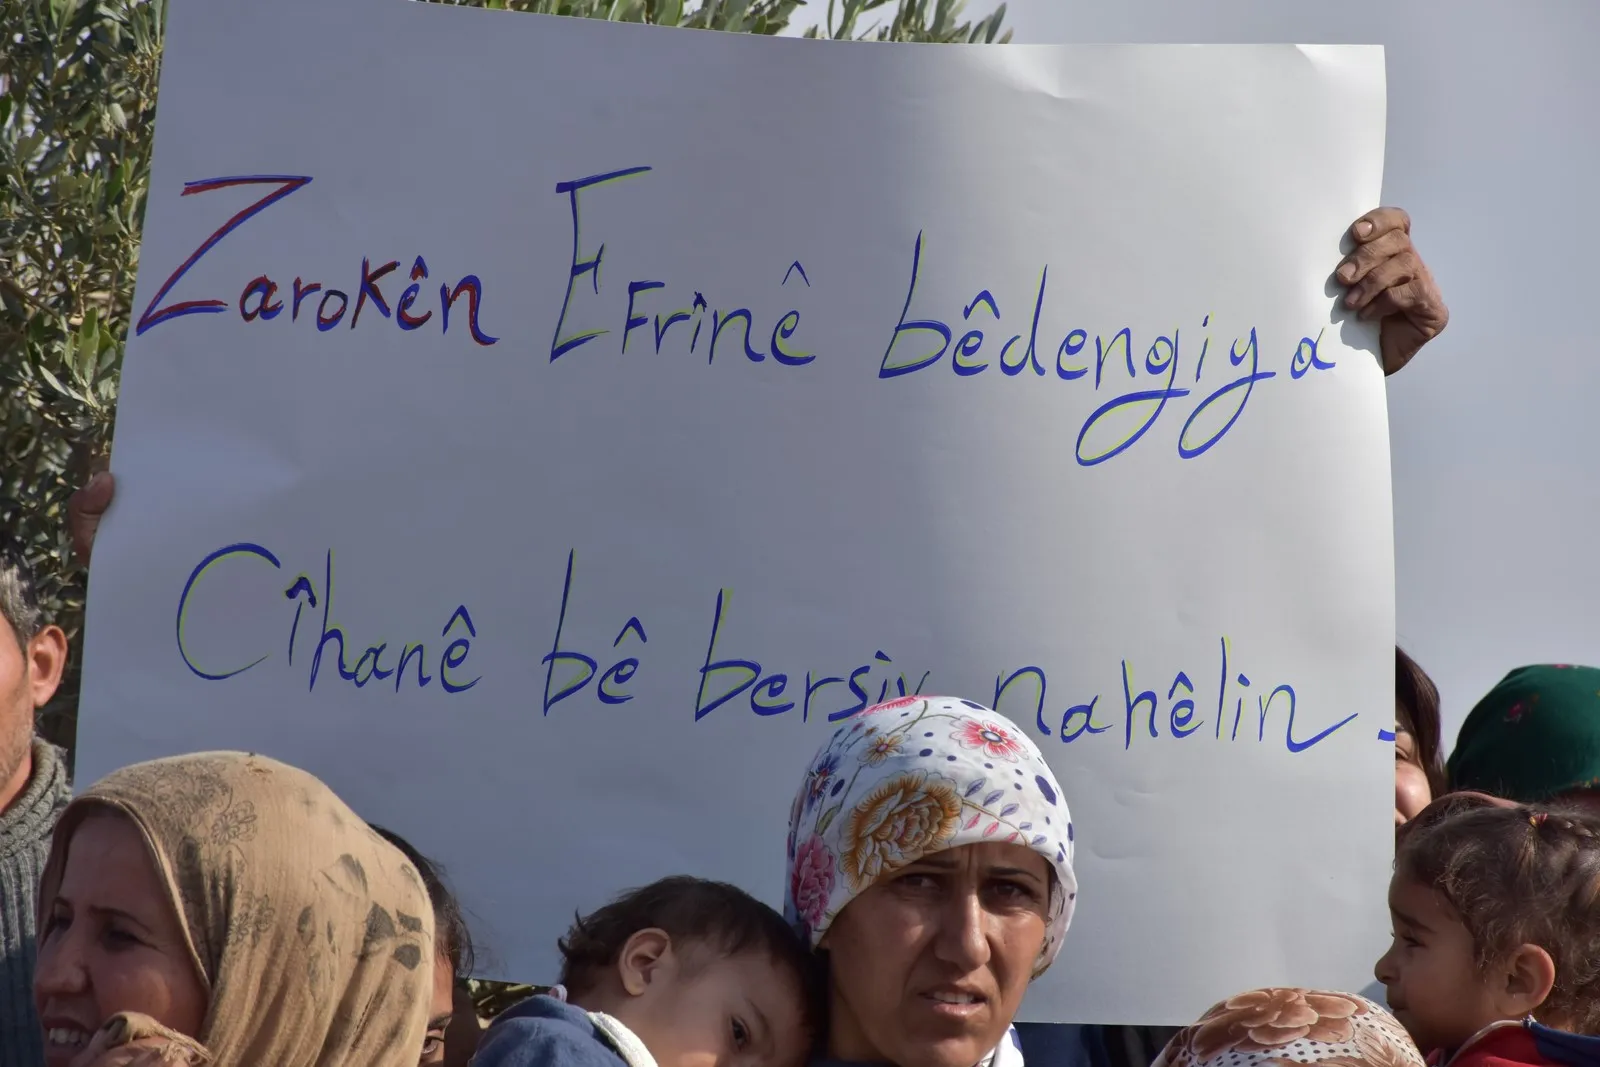 Zarokên Efrînê bêdengiya
Cîhanê bê bersiv nahêlin